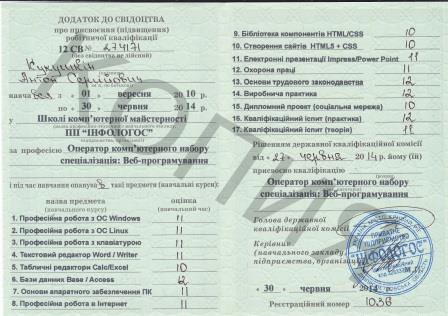 ДОДАТОК ДО СВІДОЦТВА
про присвоєння (підвищення)
робітничої кваліфікації
12 СВ № 274171
(без свідоцтва не дійсний)
Антон Сергійович
з « 01 » вересня 2010 р.
по « 30 » червня 2014 р.
у Школі комп'ютерної майстерності
ПП "ІНФОЛОГОС"
за професією Оператор комп'ютерного набору
спеціалізація: Веб-програмування
і під час навчання опанував такі предмети (навчальні курси):
назва предмета оцінка
(навчального курсу)
1. Професійна робота з ОС Windows 11
2. Професійна робота з ОС Linux 11
3. Професійна робота з клавіатурою 11
4. Текстовий редактор Word / Writer 11
5. Табличні редактори Calc/Excel 10
6. Бази данних Base / Access 12
7. Основи апаратного забезпечення ПК 11
8. Професійна робота в Інтернет 11
9. Бібліотека компонентів HTML/CSS 10
10. Створення сайтів HTML5 + CSS 10
11. Електронні презентації Impress/Power Point 11
12. Охорона праці 11
13. Основи трудового законодавства 12
14. Виробнича практика 12
15. Дипломний проект (соціальна мережа) 10
16. Кваліфікаційні іспит (практика) 12
17. Кваліфікаційні іспит (теорія) 11
Рішенням державної кваліфікаційної комісії
від « 27 » червня 2014 р. йому (їй)
присвоєно кваліфікацію
Оператор комп'ютерного набору
спеціалізація: Веб-програмування
Голова державної
кваліфікаційної комісії
Керівник
(навчального закладу,
підприємства, організації)
М.П.
« 30 » червня 2014
Реєстраційний номер 1036
КОПІЯ
ПРИВАТНЕ
ПІДПРИЄМСТВО
"ІНФОЛОГОС"